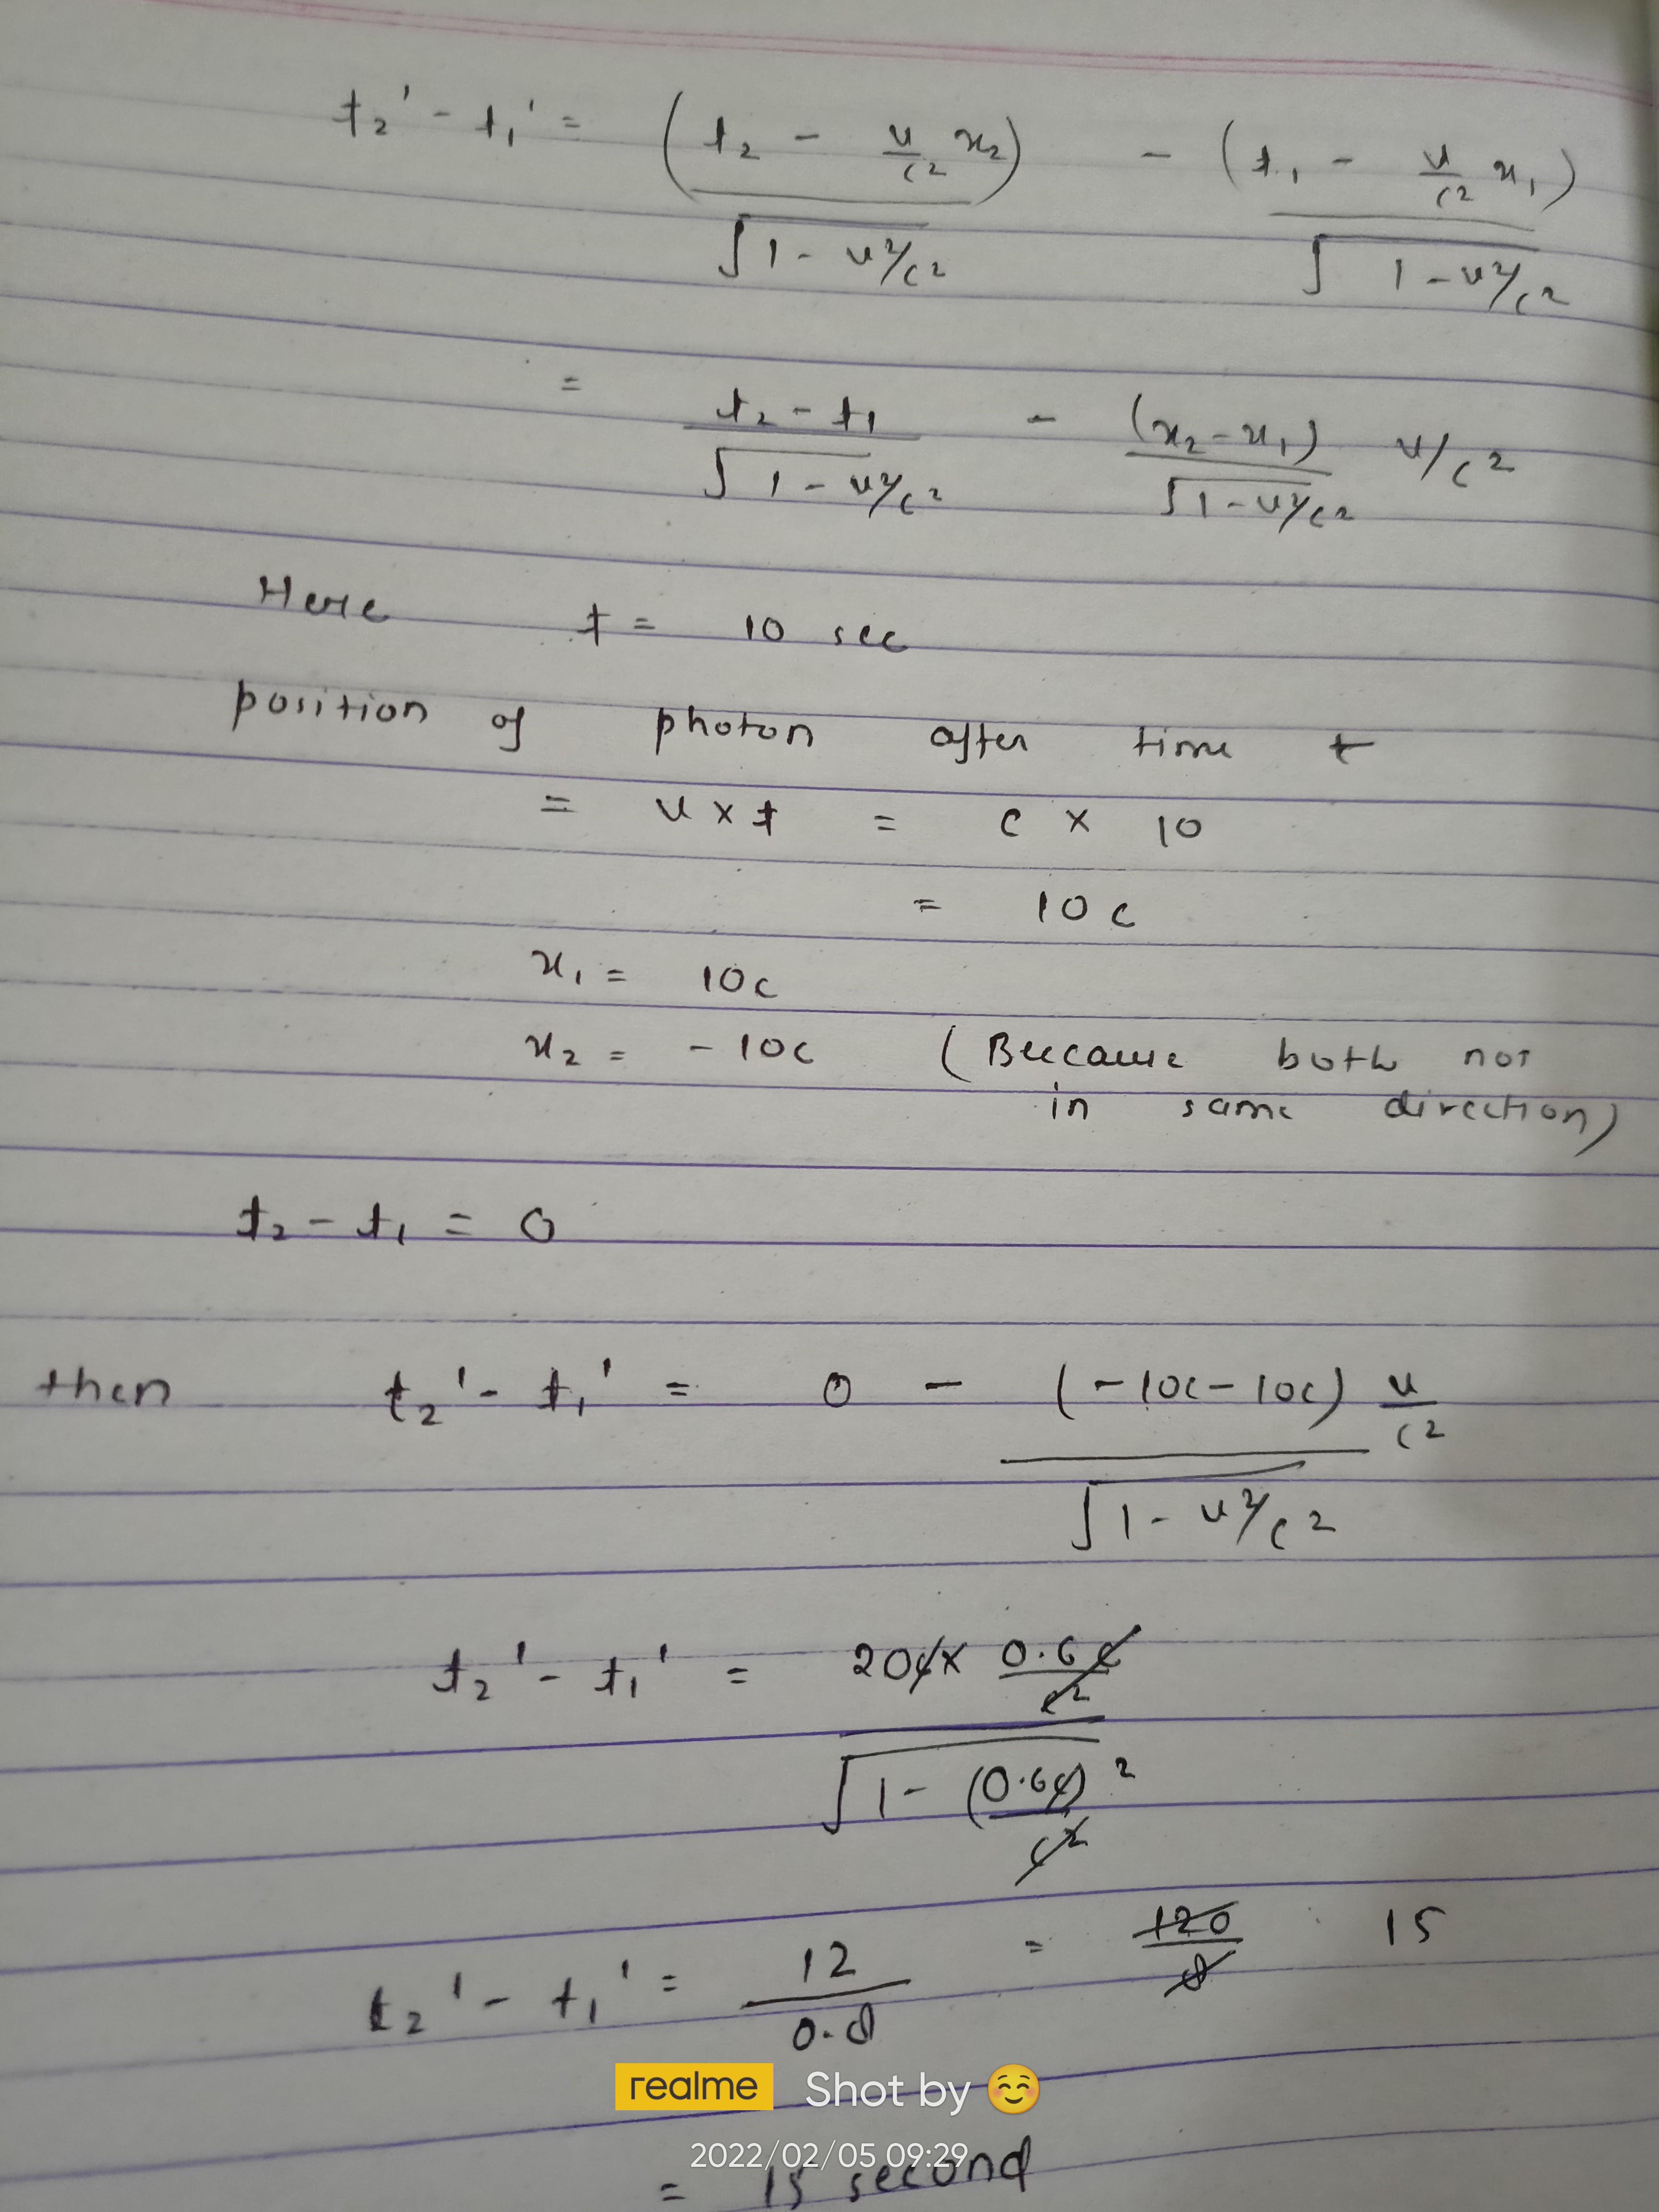 t₂' - t₁' = (t₂ - v/c² x₂)/√(1 - v²/c²) - (t₁ - v/c² x₁)/√(1 - v²/c²)
= (t₂ - t₁)/√(1 - v²/c²) - (x₂ - x₁)/√(1 - v²/c²) v/c²
Here t = 10 sec
position of photon after time t
= v × t = c × 10
= 10c
x₁ = 10c
x₂ = - 10c (Beecause both not
in same direction)
t₂ - t₁ = 0
then t₂' - t₁' = 0 - (-10c - 10c) v/c² / √(1 - v²/c²)
t₂' - t₁' = 20c × 0.6c/c² / √(1 - (0.6c)²/c²)
t₂' - t₁' = 12/0.8 = 120/8 15
realme Shot by 😊
2022/02/05 09:29
= 15 second